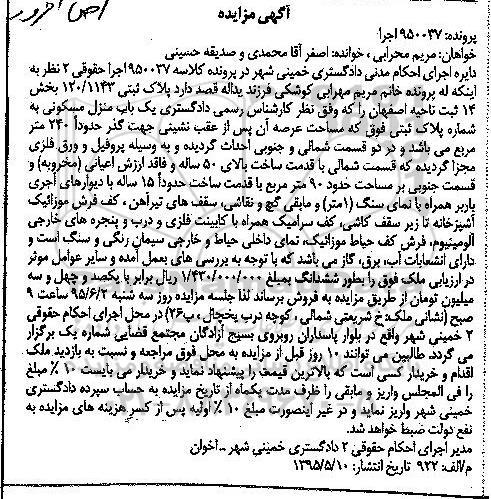 آگهی مزایده
پرونده: ۹۵۰۰۳۷ اجرا
خواهان: مریم محرابی ، خوانده: اصغر آقا محمدی و صدیقه حسینی
دایره اجرای احکام مدنی دادگستری خمینی شهر در پرونده کلاسه ۹۵۰۰۳۷ اجرا حقوقی ۲ نظر به
اینکه له پرونده خانم مریم مهرابی کوشکی فرزند یداله قصد دارد پلاک ثبتی ۱۲۰/۱۱۴۳ بخش
۱۴ ثبت ناحیه اصفهان را که وفق نظر کارشناس رسمی دادگستری یک باب منزل مسکونی به
شماره پلاک ثبتی فوق که مساحت عرصه آن پس از عقب نشینی جهت گذر حدوداً ۲۴۰ متر
مربع می باشد و در دو قسمت شمالی و جنوبی احداث گردیده و به وسیله پروفیل و ورق فلزی
مجزا گردیده که قسمت شمالی با قدمت ساخت بالای ۵۰ ساله و فاقد ارزش اعیانی (مخروبه) و
قسمت جنوبی بر مساحت حدود ۹۰ متر مربع با قدمت ساخت حدوداً ۱۵ ساله با دیوارهای آجری
باربر همراه با نمای سنگ (۱متر) و مابقی گچ و نقاشی، سقف های تیرآهن ، کف فرش موزائیک
آشپزخانه تا زیر سقف کاشی، کف سرامیک همراه با کابینت فلزی و درب و پنجره های خارجی
آلومینیوم، فرش کف حیاط موزائیک، نمای داخلی حیاط و خارجی سیمان رنگی و سنگ است و
دارای انشعابات آب، برق، گاز می باشد که با توجه به بررسی های بعمل آمده و سایر عوامل موثر
در ارزیابی ملک فوق را بطور ششدانگ بمبلغ ۱/۴۳۰/۰۰۰/۰۰۰ ریال برابر با یکصد و چهل و سه
میلیون تومان از طریق مزایده به فروش برساند لذا جلسه مزایده روز سه شنبه ۹۵/۶/۲ ساعت ۹
صبح (نشانی ملک: خ شریعتی شمالی ، کوچه درب یخچال ، پ۲۶) در محل اجرای احکام حقوقی
۲ خمینی شهر واقع در بلوار پاسداران روبروی بسیج آزادگان مجتمع قضایی شماره یک برگزار
می گردد. طالبین می توانند ۱۰ روز قبل از مزایده به محل فوق مراجعه و نسبت به بازدید ملک
اقدام و خریدار کسی است که بالاترین قیمت را پیشنهاد نماید و خریدار می بایست ۱۰٪ مبلغ
را فی المجلس واریز و مابقی را ظرف مدت یکماه از تاریخ مزایده به حساب سپرده دادگستری
خمینی شهر واریز نماید و در غیر اینصورت مبلغ ۱۰٪ اولیه پس از کسر هزینه های مزایده به
نفع دولت ضبط خواهد شد.
مدیر اجرای احکام حقوقی ۲ دادگستری خمینی شهر – آخوان
م/الف: ۹۲۲ تاریخ انتشار: ۱۳۹۵/۵/۱۰